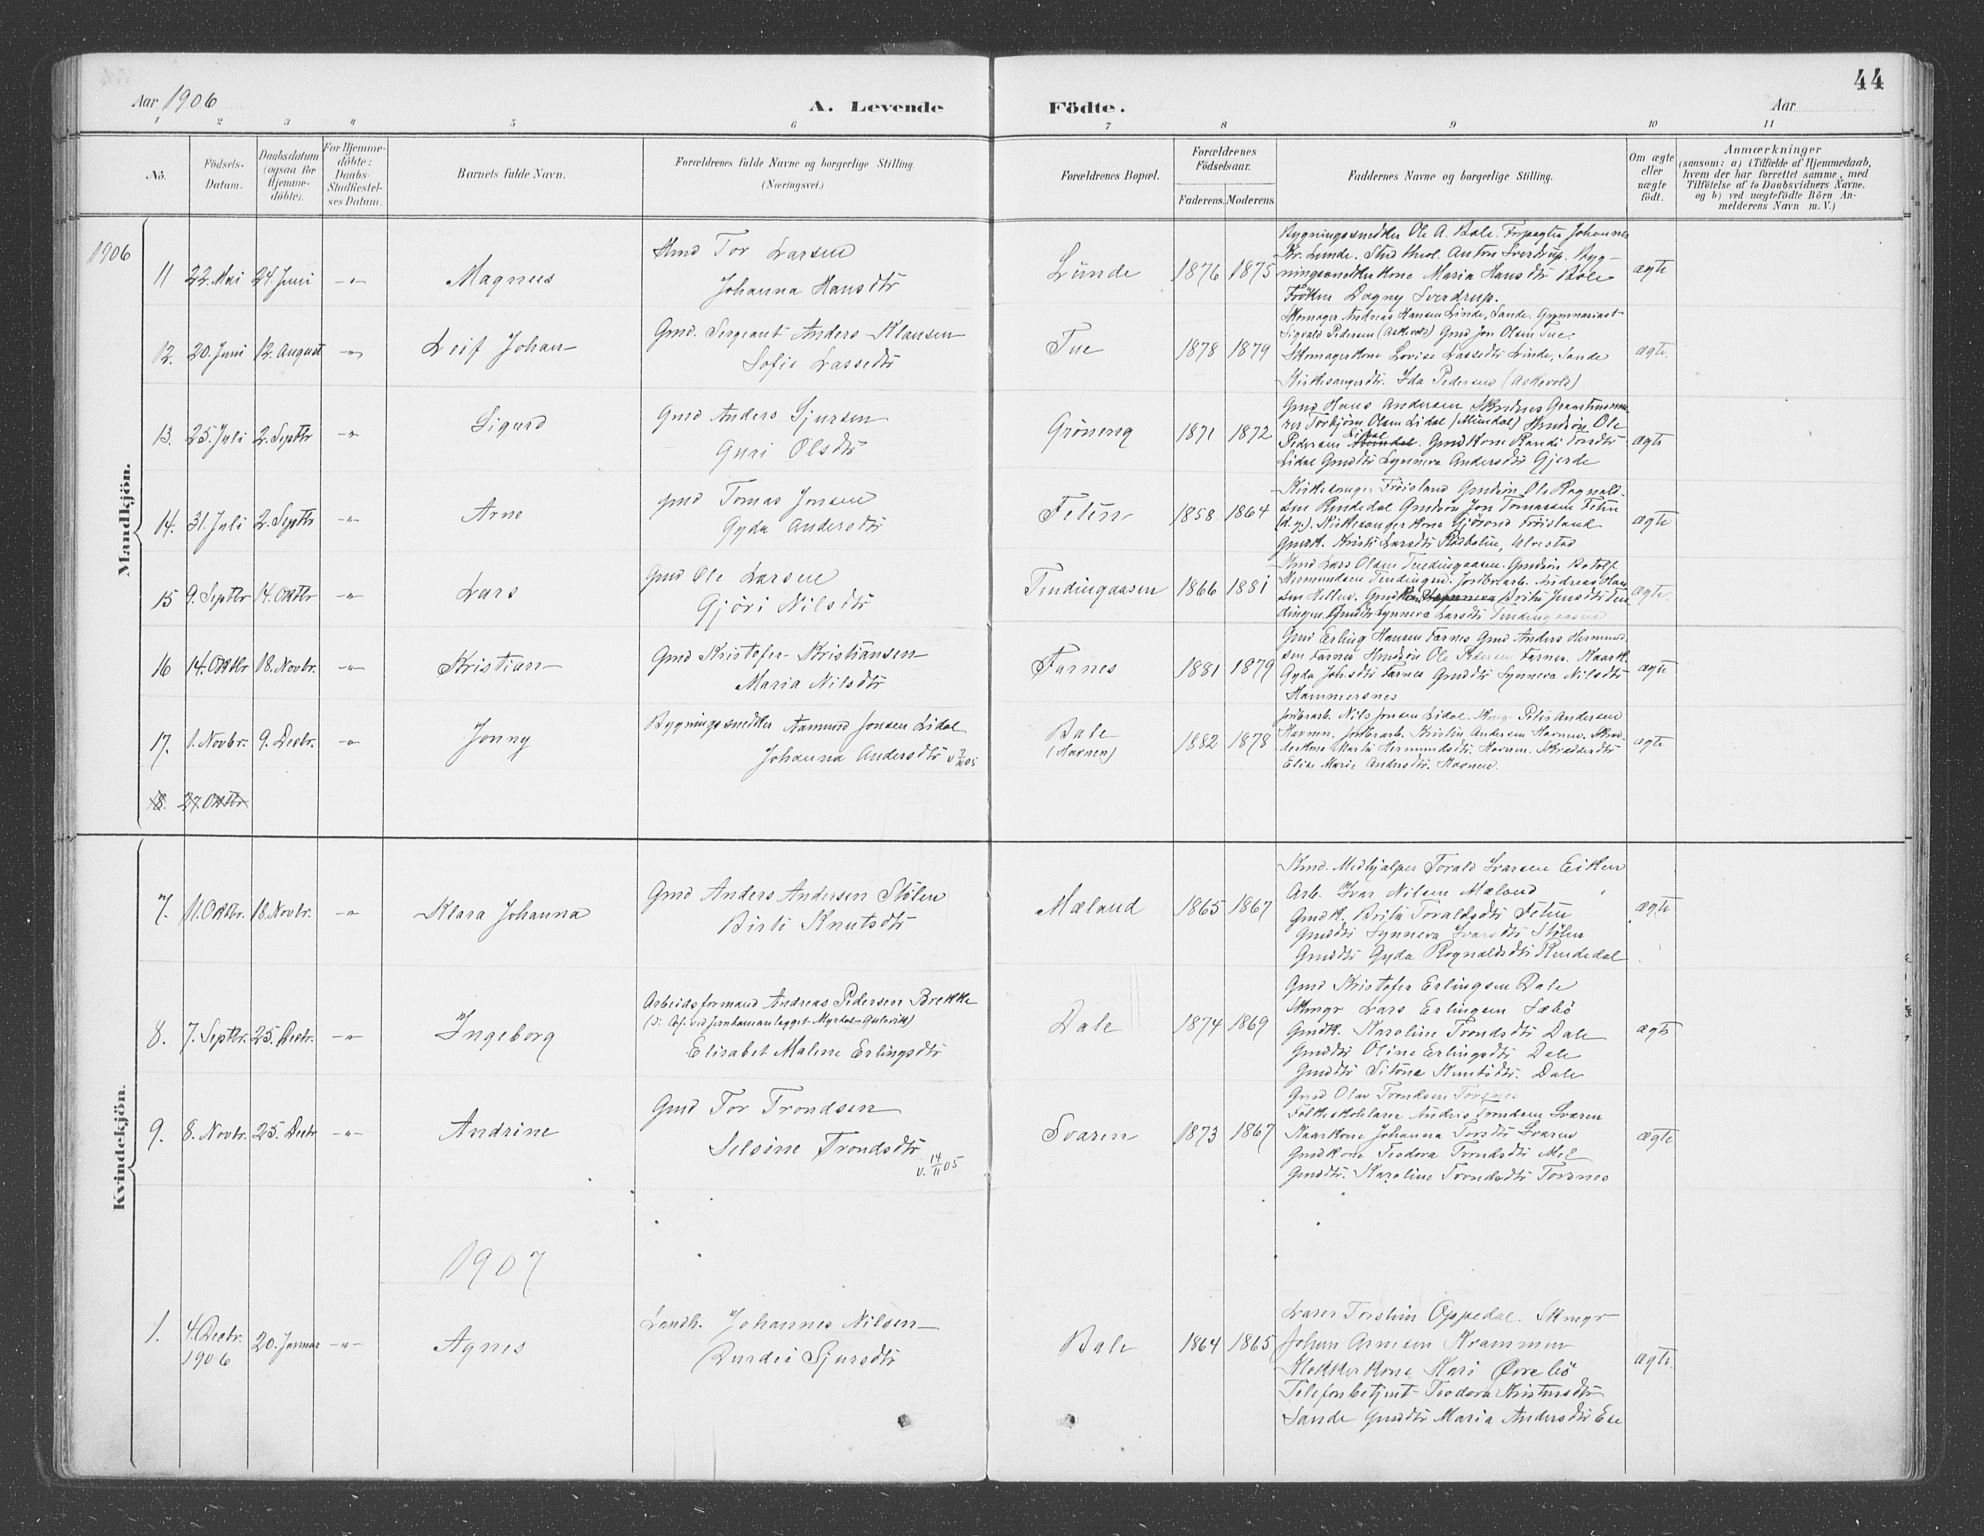 44
Aar 1906
A. Levende
Födte.
Aar
1 2 3 4 5 6 7 8 9 10 11
No.
Födsels-
Datum.
Daabsdatum
(ogsaa for
Hjemme-
döbte).
For Hjemme-
döbte:
Daabs-
Stadfæstel-
ses Datum.
Barnets fulde Navn.
Forældrenes fulde Navne og borgerlige Stilling.
(Næringsvei.)
Forældrenes Bopæl.
Forældrenes
Födselsaar.
Faderens.
Moderens.
Faddernes Navne og borgerlige Stilling.
Om ægte
eller
uægte
födt.
Anmærkninger
(saasom: a) i Tilfælde af Hjemmedaab,
hvem der har forrettet samme, med
Tilföielse af to Daabsvidners Navne.
og b) ved uægtefödte Börn An-
melderens Navn m. V.)
Mandkjön.
1906
11 22. Mai 24. Juni -"- Magnus
Tor Larsen
Johanna Hansdtr
Lunde 1876 1875
Bygningssnedker Ole A. Bale. Forpagter Johannes
Kr. Lunde. Stud. theol. Anton Sverdrup. Byg-
ningssnedkerkone Maria Hansdtr Bale
Fröken Dagny Sverdrup.
ægte
12. 20. Juni 12. August -"- Leif Johan
Gmd. Sergeant Anders Klausen
Sofie Lassedtr
Tue 1878 1879
Skomager Andreas Hansen Linde, Sande. Gymnasiast
Sigvald Pedersen (Askevold) Gmd Jon Olsen Tue.
Skomagerkone Lovise Lassedtr Linde, Sande
Kirkesangerdtr. Ida Pedersen (Askevold)
ægte.
13. 25. Juli 2. Septbr -"- Sigurd
Gmd Anders Sjursen
Guri Olsdtr
Gröneng 1871 1872
Gmd Hans Andersen
Torbjörn Olsen Lidal (Mundal) Ole
Pedersen Lidal. Gmdkone Randi Tondtr
Lidal Gmddtr Synneva Andersdtr Gjerde
ægte
14. 31. Juli 2. Septbr -"- Arne
Gmd Tomas Jonsen
Gyda Andersdtr
Feten 1858 1864
Kirkesanger Fröisland Gmdsön Ole Rognald-
sen Rendedal Gmdsön Jon Tomassen Feten
(d. y.) Kirkesangerkone Fröisland
Gmdk. Kristi Larsdtr Ulvestad
ægte
15 9. Septbr 14. Oktbr -"- Lars
Gmd Ole Larsen
Gjöri Nilsdtr
Tendingaasen 1866 1881
Gmd Lars Olsen Tendingaasen. Gmdsön Botolf
Hermundsen Tendingen. Jordbrarb. Andreas Han-
sen Gmdkone Brita Jensdtr Ten-
dingen. Gmddtr Synneva Larsdtr Tendingaasen
ægte.
16 14. Oktbr 18. Novbr. -"- Kristian
Gmd Kristofer Kristiansen
Maria Nilsdtr
Farnes 1881 1879
Gmd Erling Hansen Farnes Gmd Anders Hermund-
sen Farnes Ole Pedersen Farnes. Kaark.
Gyda Johsdtr Farnes Gmddtr Synneva Nilsdtr
Hammersnes
ægte
17. 1. Novbr. 9. Decbr. -"- Jonny
Bygningssnedker Aamund Jonsen Lidal
Johanna Andersdtr
Bale
(Havnen)
1882 1878
Jordbrarb. Nils Jonsen Lidal. Peter Andersen
Havnen. Jordbrarb. Kristen Andersen Havnen.
Marta Hermundsdtr. Havnen. Skrædderdtr
Elia Marie Andersdtr. Havnen.
ægte.
18. 27. Oktbr
Kvindekjön.
7. 11. Oktbr. 18. Novbr. -"- Klara Johanna
Gmd Anders Andersen Stölen
Birte Knutsdtr
Mæland 1865 1867
Gmd. Medhjælper Torald Ivarsen Eiken
Arb. Ivar Nilsen Mæland
Gmdk. Brita Toraldsdtr Feten
Gmddtr Synneva Ivarsdtr Stölen
Gmddtr Gyda Rognaldsdtr Rendedal
ægte
8. 7. Septbr. 25. Decbr. -"- Ingeborg
Arbeidsformand Andreas Pedersen Brekke
(ved Jernbaneanlægget Myrdal-Gulsvik)
Elisabet Malene Erlingsdtr
Dale 1874 1869
Gmd Kristofer Erlingsen Dale
Skmgr Lars Erlingsen Læbö
Gmdk. Karoline Trondsdtr Dale
Gmddtr Oline Erlingsdtr Dale
Gmddtr Knutsdtr. Dale
ægte
9. 8. Novbr. 25. Decbr -"- Andrine
Gmd Tor Trondsen
Selsine Trondsdtr
v. 14/11 05
Svaren 1873 1867
Gmd Olav Trondsen Torsnes
Folkeskolelærer Anders Trondsen Svaren
Kaarkone Johanna Torsdtr Svaren
Gmdkone Teodora Trondsdtr Mel
Gmddtr. Karoline Trondsdtr Torsnes
ægte
1907
1. 4. Decbr. 1906 20. Januar -"- Agnes
Landh. Johannes Nilsen
Durdei Sjursdtr
Bale 1864 1865
Lærer Torstein Oppedal. Skmgr
Johan Arnesen Krammen
Klokkerkone Kari Övrebö
Telefonbetjent Teodora Kristensdtr
Sande Gmddtr Maria Andersdtr Ese
ægte.